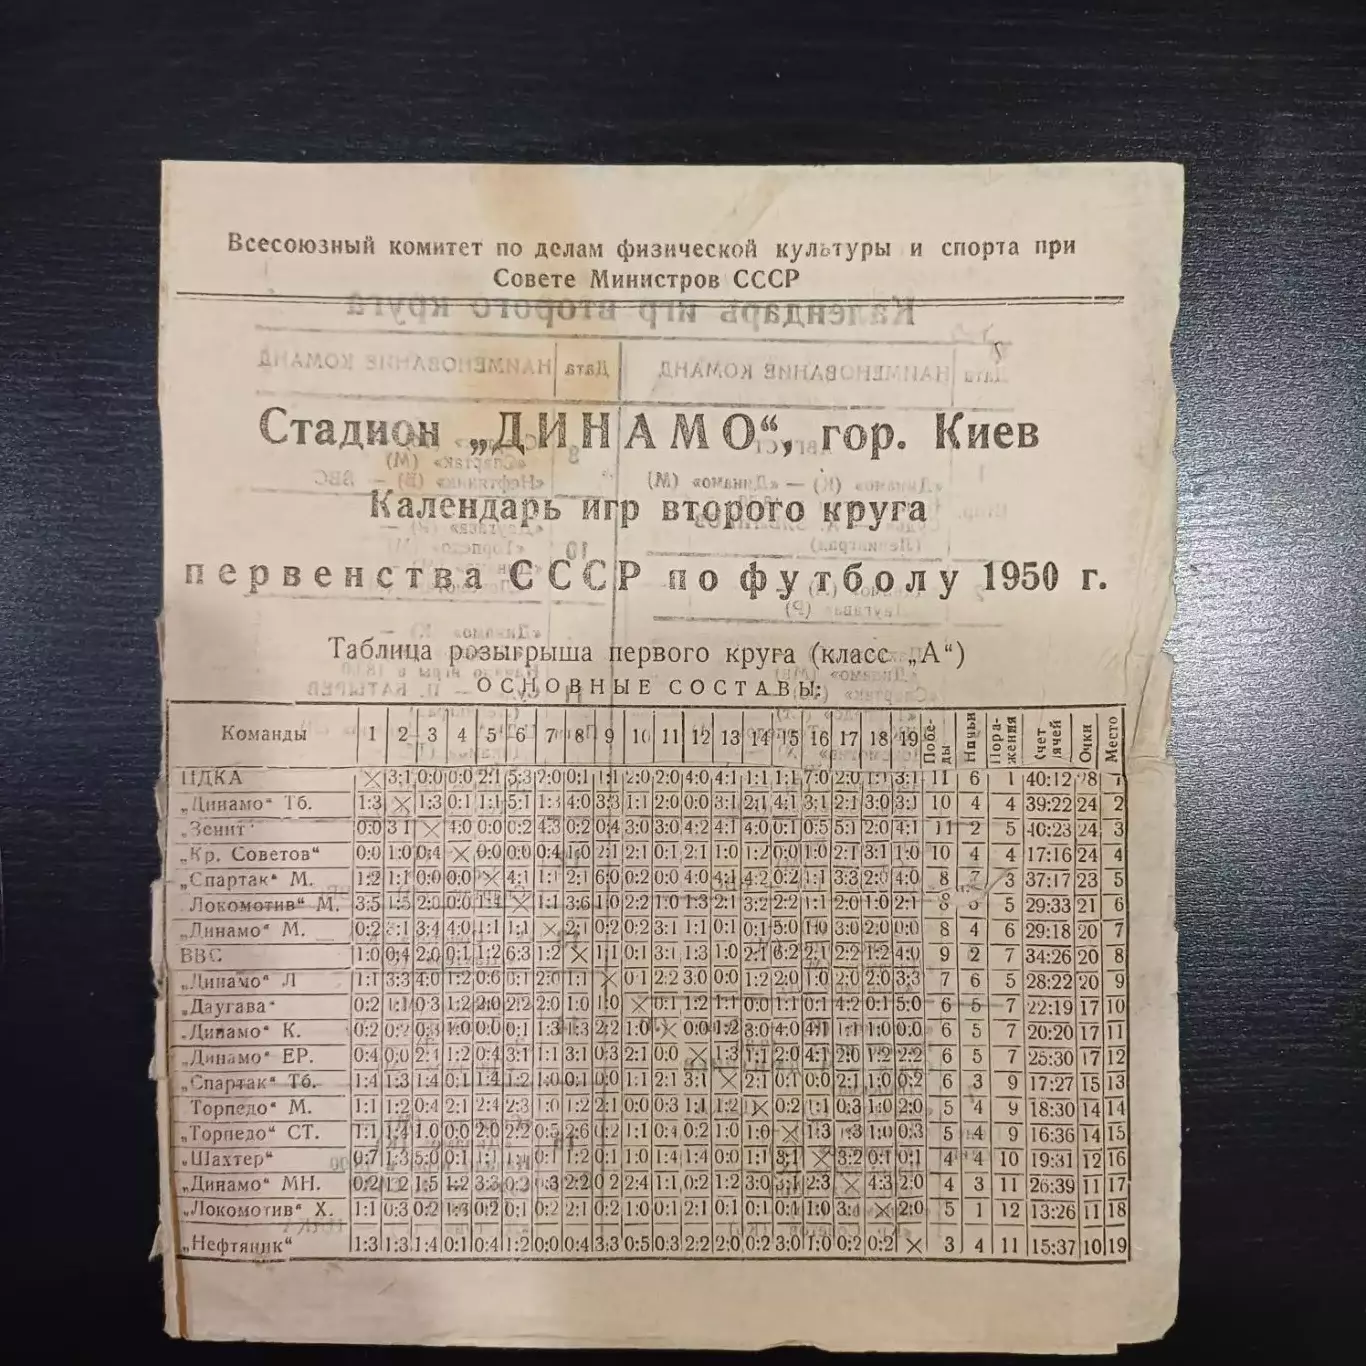 Всесоюзный комитет по делам физической культуры и спорта при
Совете Министров СССР
Стадион „ДИНАМО“, гор. Киев
Календарь игр второго круга
первенства СССР по футболу 1950 г.
Таблица розыгрыша первого круга (класс „А“)
ОСНОВНЫЕ СОСТАВЫ:
Команды 1 2 3 4 5 6 7 8 9 10 11 12 13 14 15 16 17 18 19 Победы Ничьи Поражения Счет мячей Очки Место
ЦДКА 3:1 0:0 0:0 2:1 5:3 2:0 0:1 1:1 2:0 2:0 4:0 4:1 1:1 1:1 7:0 2:0 1:1 3:1 11 6 1 40:12 28 1
„Динамо“ Тб. 1:3 1:3 0:1 1:1 5:1 1:3 4:0 3:3 1:1 2:0 0:0 3:1 2:1 4:1 3:1 2:1 3:0 3:1 10 4 4 39:22 24 2
„Зенит“ 0:0 3 1 4:0 0:0 0:2 4:3 0:2 0:4 3:0 3:0 4:2 4:1 4:0 0:1 0:5 5:1 2:0 4:1 11 2 5 40:23 24 3
„Кр. Советов“ 0:0 1:0 0:4 0:0 0:0 0:4 1:0 2:1 2:1 0:1 2:1 1:0 1:2 0:0 1:0 2:1 3:1 1:0 10 4 4 17:16 24 4
„Спартак“ М. 1:2 1:1 0:0 0:0 4:1 1:1 2:1 6:0 0:2 0:0 4:0 4:1 4:2 0:2 1:1 3:3 2:0 4:0 8 7 3 37:17 23 5
Локомотив“ М. 3:5 1:5 2:0 0:0 1:4 1:1 3:6 1:0 2:2 1:0 1:3 2:1 3:2 2:2 1:1 2:0 1:0 2:1 8 5 29:33 21 6
„Динамо“ М. 0:2 3:1 3:4 4:0 1:1 1:1 2:1 0:2 0:2 3:1 1:1 0:1 0:1 5:0 1:0 3:0 2:0 0:0 8 4 6 29:18 20 7
ВВС 1:0 0:4 2:0 0:1 1:2 6:3 1:2 1:1 0:1 3:1 1:3 1:0 2:1 6:2 2:1 2:2 1:2 4:0 9 2 7 34:26 20 8
„Динамо“ Л 1:1 3:3 4:0 1:2 0:6 0:1 2:0 1:1 0:1 2:2 3:0 0:0 1:2 2:0 1:0 2:0 2:0 3:3 7 6 5 28:22 20 9
„Даугава“ 0:2 1:1 0:3 1:2 2:0 2:2 2:0 1:0 1:0 0:1 1:2 1:1 0:0 1:1 0:1 4:2 0:1 5:0 6 5 7 22:19 17 10
„Динамо“ К. 0:2 0:2 0:3 1:0 0:0 0:1 1:3 1:3 2:2 1:0 0:0 1:2 3:0 4:0 4:1 1:1 1:0 0:0 6 5 7 20:20 17 11
„Динамо“ ЕР. 0:4 0:0 2:4 1:2 0:4 3:1 1:1 3:1 0:3 2:1 0:0 1:3 1:1 2:0 4:1 2:0 1:2 2:2 6 5 7 25:30 17 12
„Спартак“ Тб. 1:4 1:3 1:4 0:1 1:4 1:2 1:0 0:1 0:0 1:1 2:1 3:1 2:1 0:1 0:0 2:1 1:0 0:2 6 3 9 17:27 15 13
Торпедо“ М. 1:1 1:2 0:4 2:1 2:4 2:3 1:0 1:2 2:1 0:0 0:3 1:1 1:2 0:2 1:1 0:3 1:0 2:0 5 4 9 18:30 14 14
„Торпедо“ СТ. 1:1 1:4 1:0 0:0 2:0 2:2 0:5 2:6 0:2 1:1 0:4 0:2 1:0 1:0 1:3 1:3 1:0 0:3 5 4 9 16:36 14 15
„Шахтер“ 0:7 1:3 5:0 0:1 1:1 1:1 0:1 1:2 0:1 1:0 1:4 1:4 0:0 1:1 3:1 3:2 0:1 0:1 4 4 10 19:31 12 16
„Динамо“ МН. 0:2 1:2 1:5 1:2 3:3 0:2 0:3 2:2 0 2 2:4 1:1 0:2 1:2 3:0 3:1 2:3 4:3 2:0 4 3 11 26:39 11 17
„Локомотив“ Х. 1:1 0:3 0:2 1:3 0:2 0:1 0:2 2:1 0:2 1:0 0:1 2:1 0:1 0:1 0:1 1:0 3:4 2:0 5 1 12 13:26 11 18
„Нефтяник“ 1:3 1:3 1:4 0:1 0:4 1:2 0:0 0:4 3:3 0:5 0:3 2:2 2:0 0:2 3:0 1:0 0:2 0:2 3 4 11 15:37 10 19